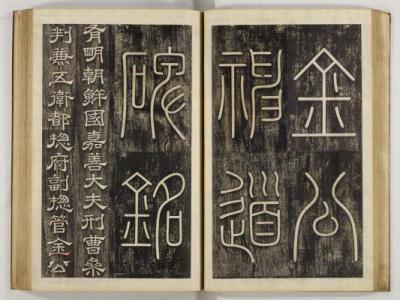 金公
神道
碑銘
有明朝鮮國嘉善大夫刑曹叅
判兼五衛都摠府副摠管金公